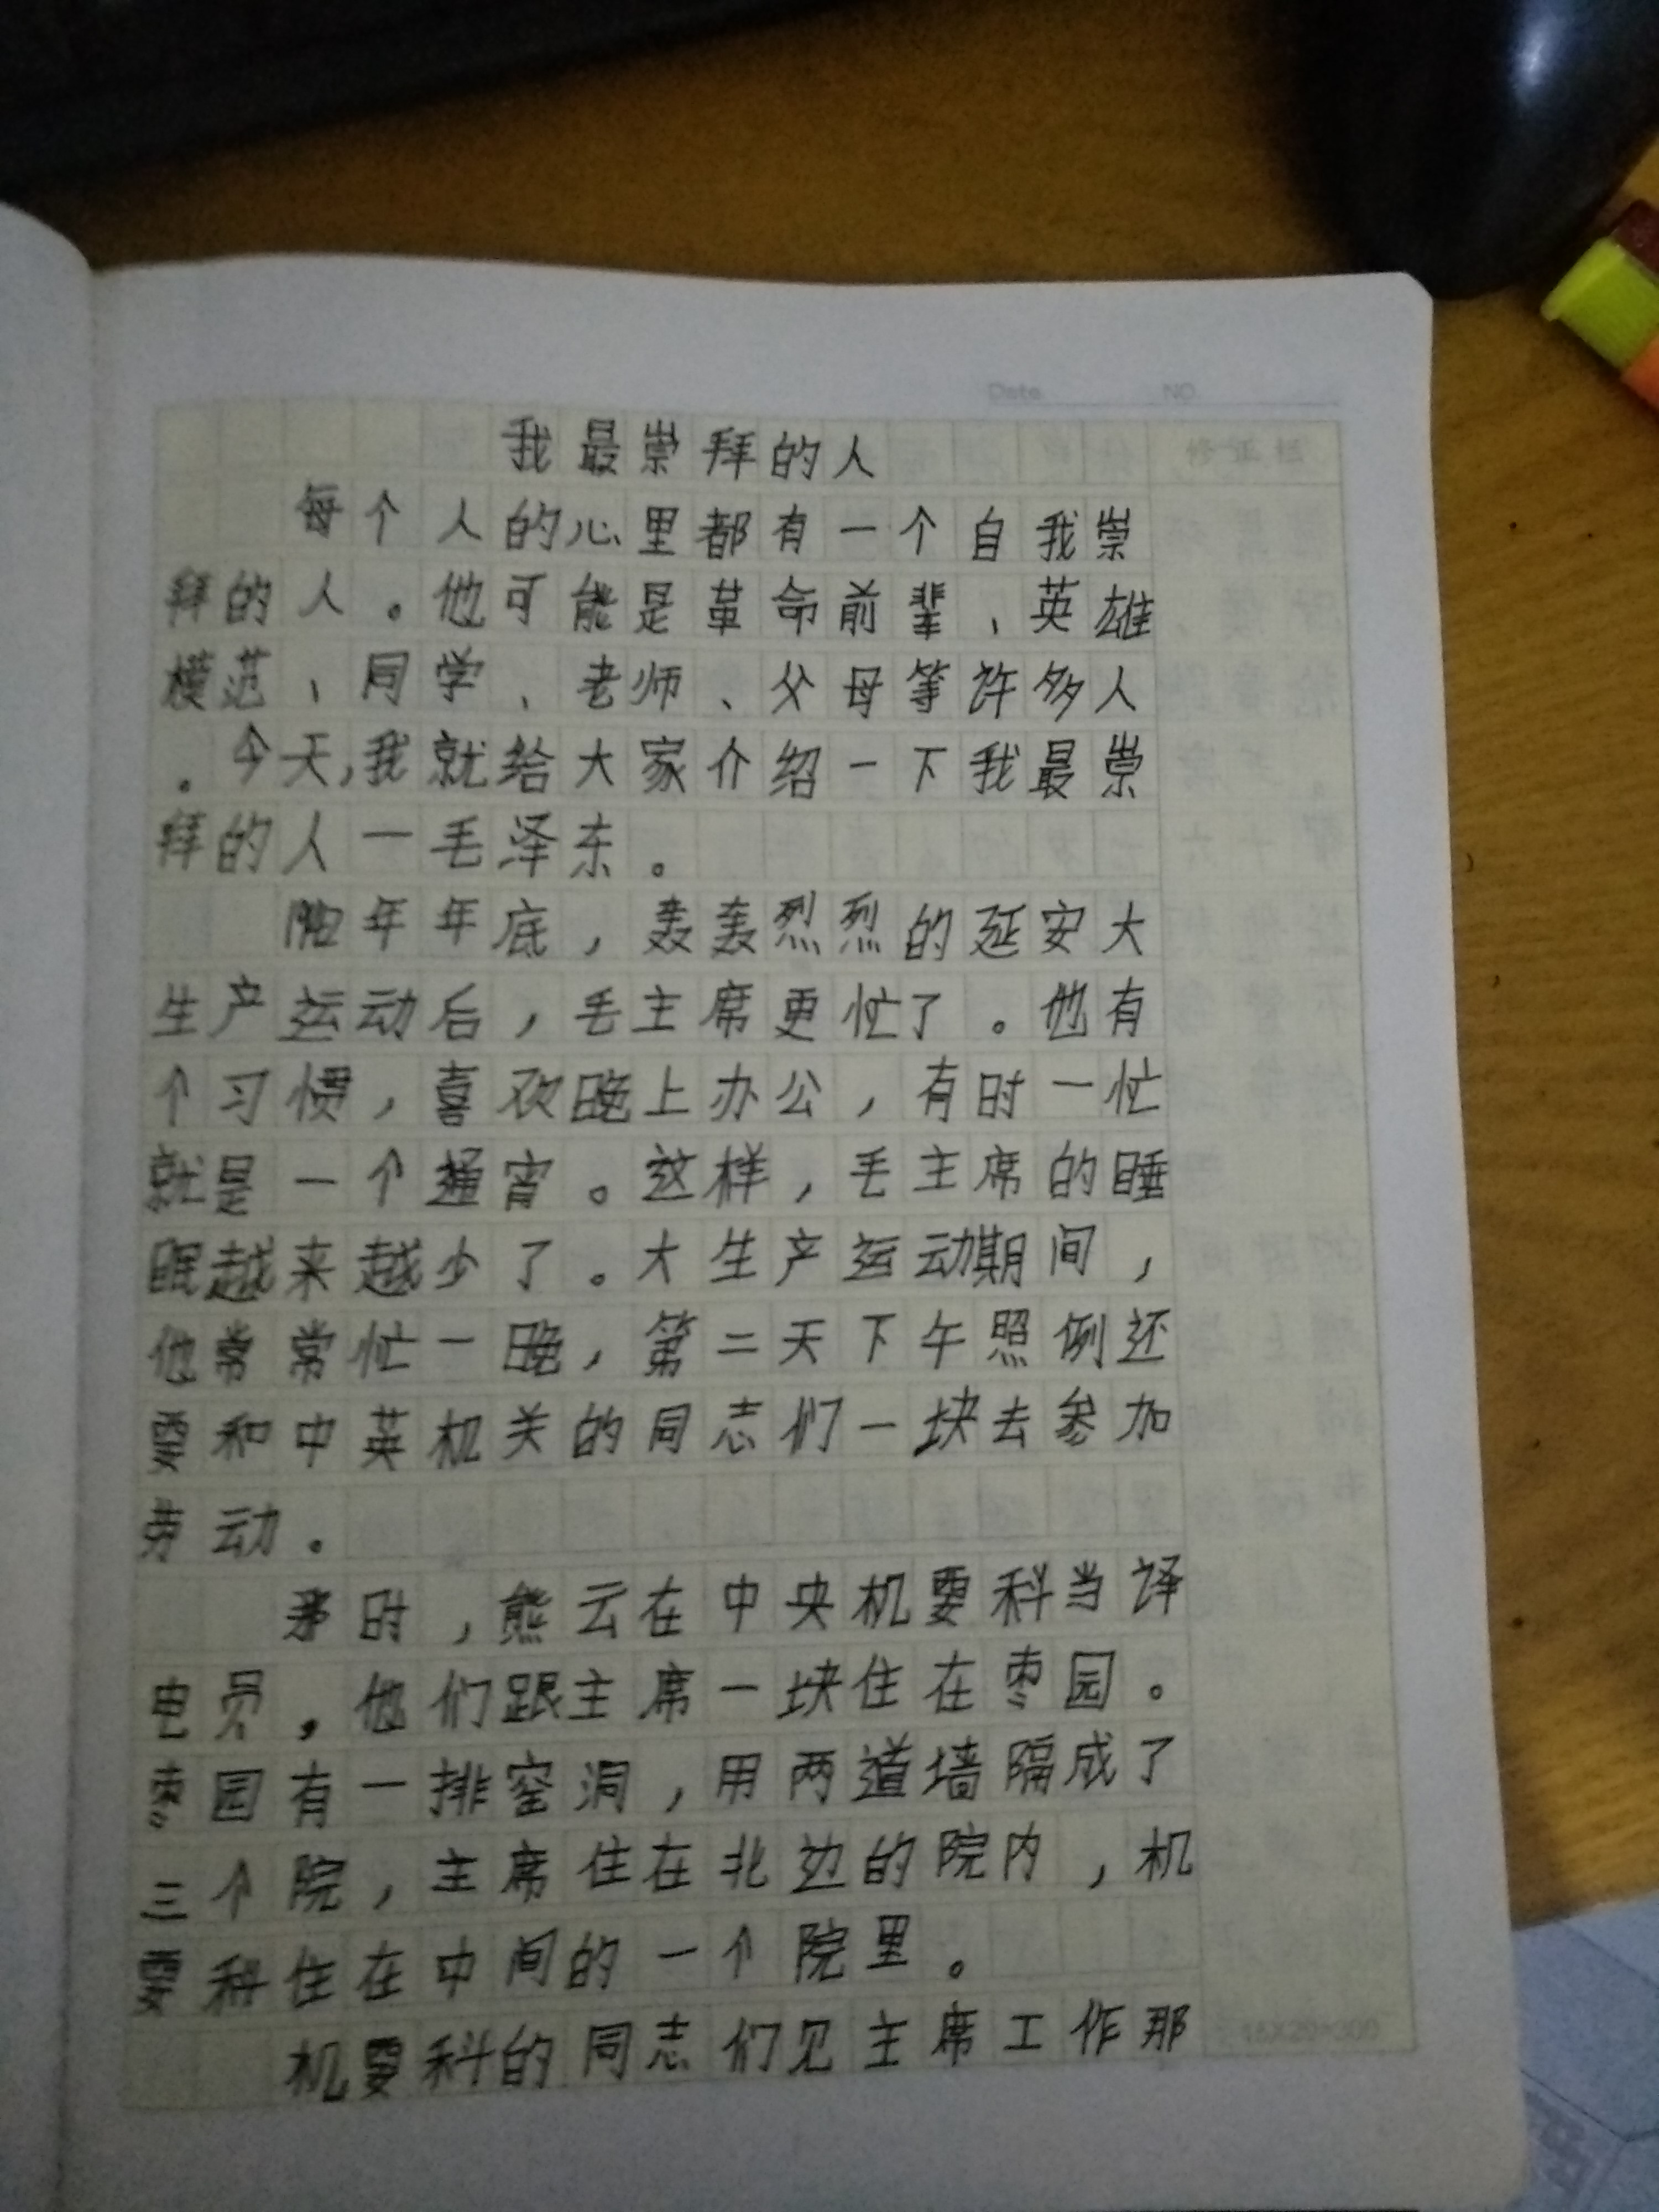 Date NO.
修正栏
我最崇拜的人
每个人的心里都有一个自我崇
拜的人。他可能是革命前辈、英雄
模范、同学、老师、父母等许多人
。今天,我就给大家介绍一下我最崇
拜的人一毛泽东。
年年底，轰轰烈烈的延安大
生产运动后，毛主席更忙了。他有
个习惯，喜欢晚上办公，有时一忙
就是一个通宵。这样，毛主席的睡
眠越来越少了。大生产运动期间，
他常常忙一晚，第二天下午照例还
要和中英机关的同志们一块去参加
劳动。
时，熊云在中央机要科当译
电员，他们跟主席一块住在枣园。
枣园有一排窑洞，用两道墙隔成了
三个院，主席住在北边的院内，机
要科住在中间的一个院里。
机要科的同志们见主席工作那
15X20=300